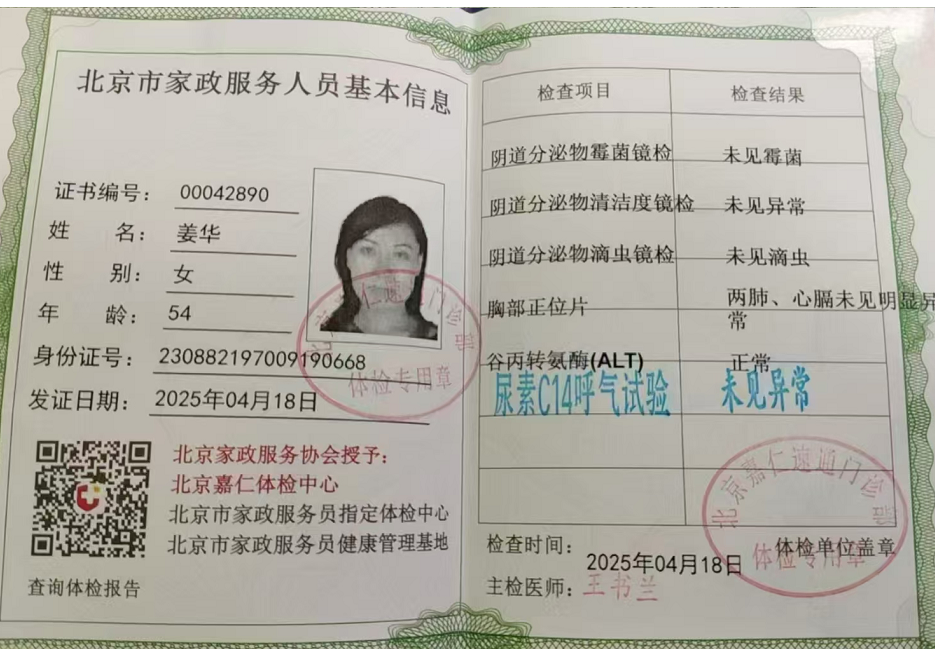 北京市家政服务人员基本信息
证书编号： 00042890
姓 名： 姜华
性 别： 女
年 龄： 54
身份证号： 230882197009190668
发证日期： 2025年04月18日
北京家政服务协会授予：
北京嘉仁体检中心
北京市家政服务员指定体检中心
北京市家政服务员健康管理基地
查询体检报告
北京嘉仁速通门诊部
体检专用章
检查项目 检查结果
阴道分泌物霉菌镜检 未见霉菌
阴道分泌物清洁度镜检 未见异常
阴道分泌物滴虫镜检 未见滴虫
胸部正位片 两肺、心膈未见明显异
常
谷丙转氨酶(ALT) 正常
尿素C14呼气试验 未见异常
检查时间： 2025年04月18日
体检单位盖章
主检医师： 王书兰
北京嘉仁速通门诊部
体检专用章